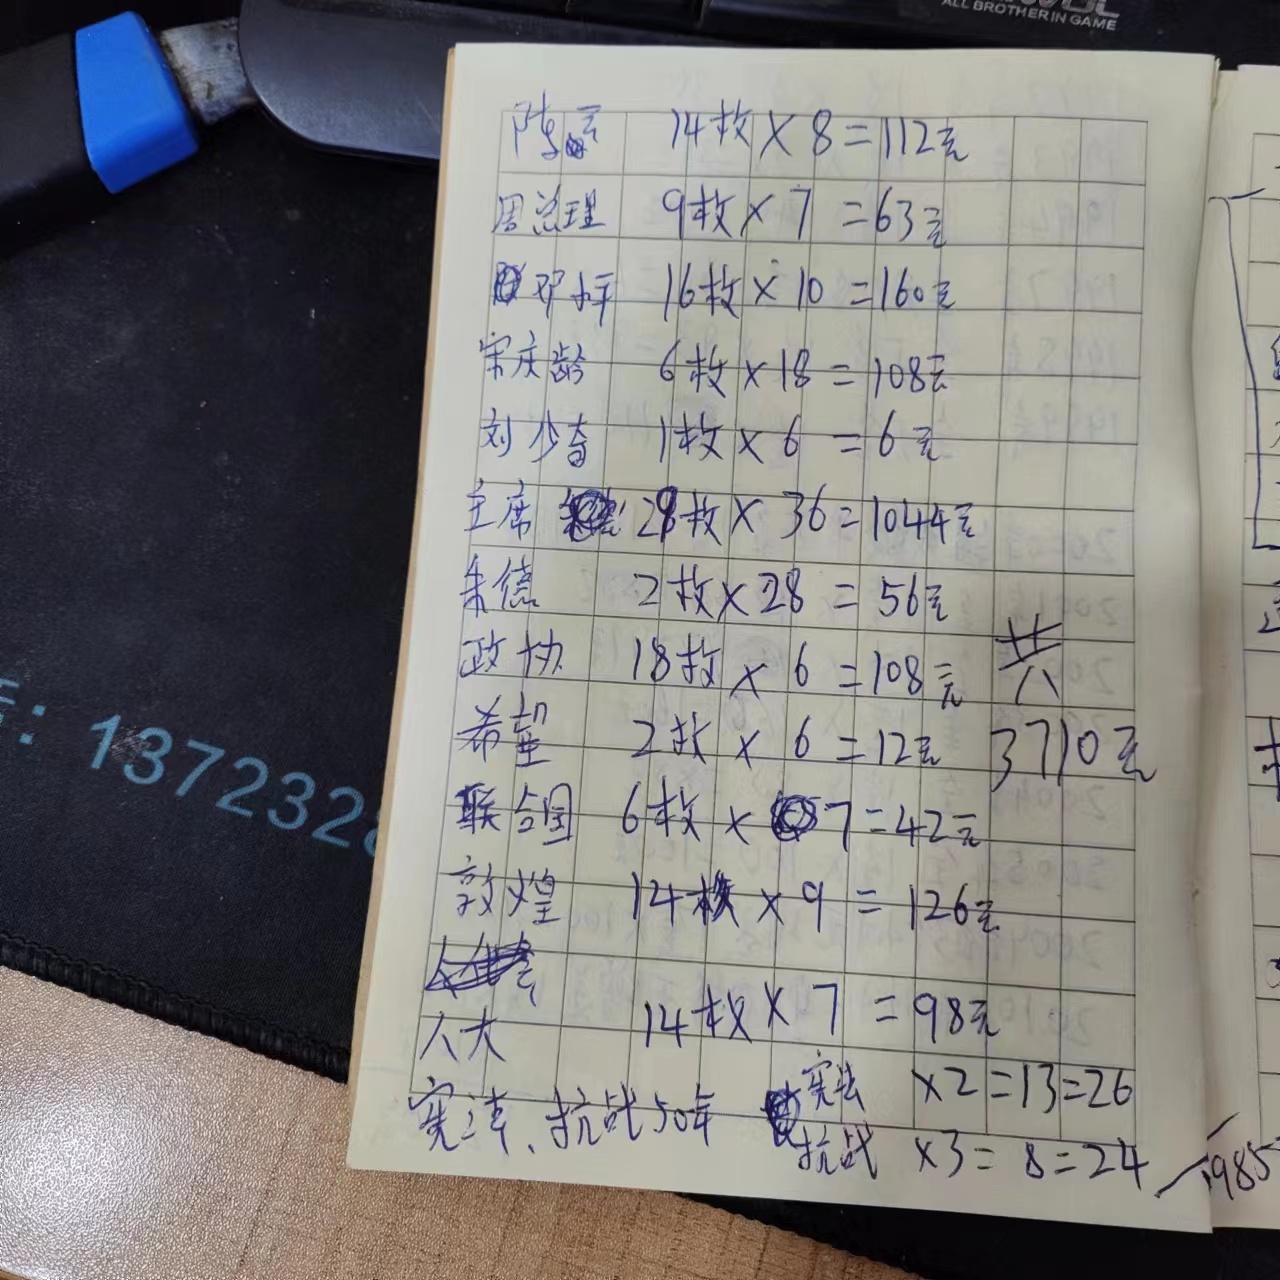 ALL BROTHER IN GAME
陈云 14枚×8=112元
周总理 9枚×7=63元
邓小平 16枚×10=160元
宋庆龄 6枚×18=108元
刘少奇 1枚×6=6元
主席 29枚×36=1044元
朱德 2枚×28=56元
政协 18枚×6=108元
共
希望 2枚×6=12元
3710元
联合国 6枚×7=42元
敦煌 14枚×9=126元
人大 14枚×7=98元
宪法、抗战50年 宪法 ×2=13=26
抗战 ×3=8=24
1985
: 1372328